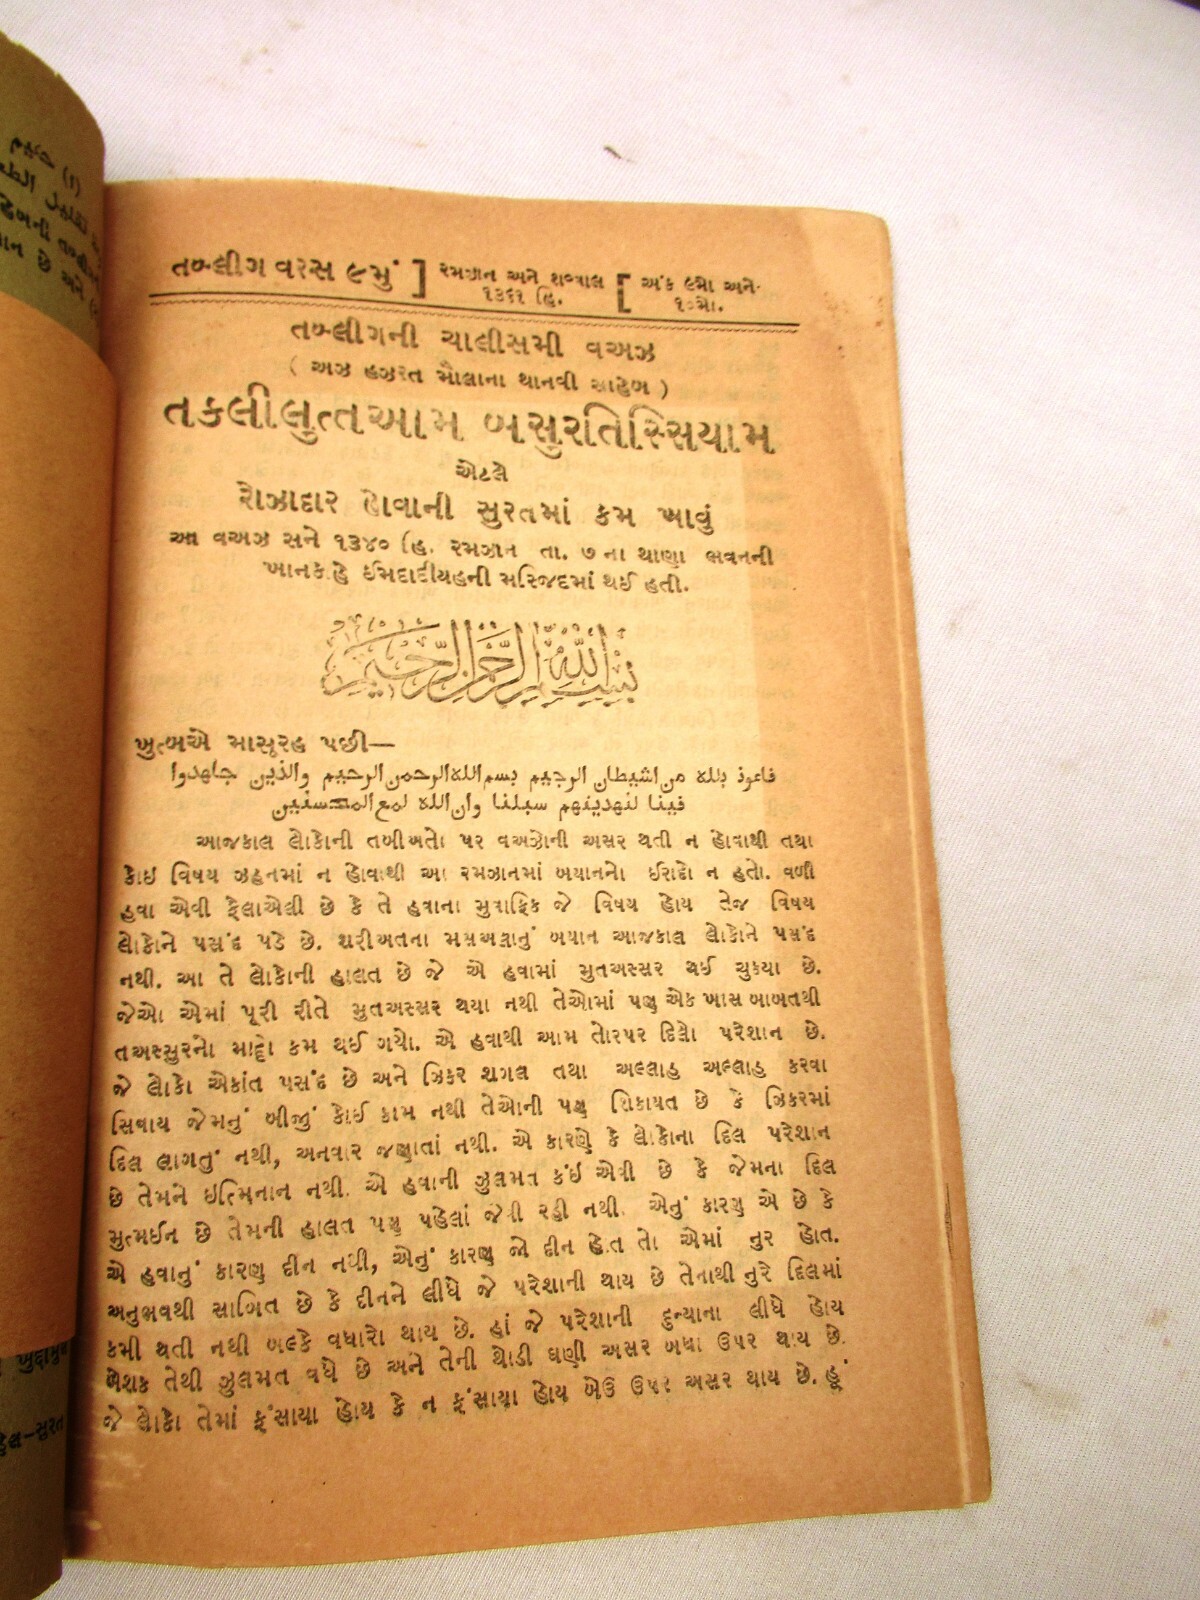 તબ્લીગ વરસ ૯મું ] રમઝાન અને શવ્વાલ ૧૩૬૧ હિ. [ અંક ૯મો અને ૧૦મો.
તબ્લીગની ચાલીસમી વઅઝ
( અઝ હઝરત મૌલાના થાનવી સાહેબ )
તકલીલુત્તઆમ બસુરતિસ્સિયામ
એટલે
રોઝાદાર હોવાની સુરતમાં કમ ખાવું
આ વઅઝ સને ૧૩૪૦ હિ. રમઝાન તા. ૭ ના થાણા ભવનની
ખાનકાહે ઈમદાદીયહની મસ્જિદમાં થઈ હતી.
بسم الله الرحمن الرحيم
ખુત્બએ માસૂરહ પછી—
فاعوذ بلله من اشيطان الرجيم بسم الله الرحمن الرحيم والذين جاهدوا
فينا لنهدينهم سبلنا وان الله لمع المحسنين
આજકાલ લોકોની તબીઅતો પર વઅઝોની અસર થતી ન હોવાથી તથા
કોઇ વિષય ઝહનમાં ન હોવાથી આ રમઝાનમાં બયાનનો ઈરાદો ન હતો. વળી
હવા એવી ફેલાએલી છે કે તે હવાના મુવાફિક જે વિષય હોય તેજ વિષય
લોકોને પસંદ પડે છે. શરીઅતના મસઅલાનું બયાન આજકાલ લોકોને પસંદ
નથી. આ તે લોકોની હાલત છે જે એ હવામાં મુતઅસ્સર થઈ ચુકયા છે.
જેઓ એમાં પૂરી રીતે મુતઅસ્સર થયા નથી તેઓમાં પણ એક ખાસ બાબતથી
તઅસ્સુરનો માદ્દો કમ થઈ ગયો. એ હવાથી આમ તોરપર દિલો પરેશાન છે.
જે લોકો એકાંત પસંદ છે અને ઝિકર શગલ તથા અલ્લાહ અલ્લાહ કરવા
સિવાય જેમનું બીજું કોઈ કામ નથી તેઓની પણ શિકાયત છે કે ઝિકરમાં
દિલ લાગતું નથી, અનવાર જણાતાં નથી. એ કારણે કે લોકોના દિલ પરેશાન
છે તેમને ઇત્મિનાન નથી. એ હવાની ઝુલમત કંઇ એવી છે કે જેમના દિલ
મુત્મઈન છે તેમની હાલત પણ પહેલાં જેવી રહી નથી. એનું કારણ એ છે કે
એ હવાનું કારણ દીન નથી, એનું કારણ જો દીન હોત તો એમાં નુર હોત.
અનુભવથી સાબિત છે કે દીનને લીધે જે પરેશાની થાય છે તેનાથી નુરે દિલમાં
કમી થતી નથી બલ્કે વધારો થાય છે. હાં જે પરેશાની દુન્યાના લીધે હોય
બેશક તેથી ઝુલમત વધે છે અને તેની થોડી ઘણી અસર બધા ઉપર થાય છે.
જે લોકો તેમાં ફંસાયા હોય કે ન ફંસાયા હોય બેઉ ઉપર અસર થાય છે. હૂં